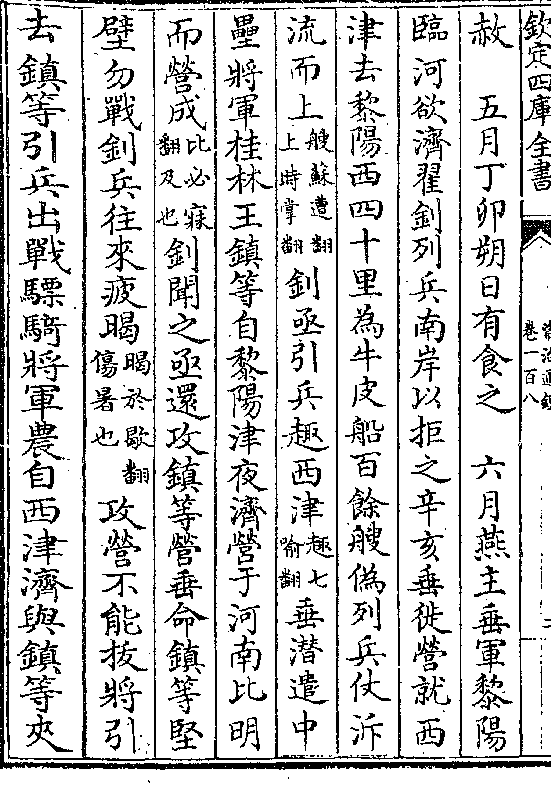 欽定四庫全書
資治通鑑
卷一百八
赦 五月丁卯朔日有食之 六月燕主垂軍黎陽
臨河欲濟翟釗列兵南岸以拒之辛亥垂徙營就西
津去黎陽西四十里為牛皮船百餘艘偽列兵仗泝
流而上艘蘇遭翻上時掌翻釗亟引兵趣西津趣七喻翻垂潜遣中
壘將軍桂林王鎮等自黎陽津夜濟營于河南比明
而營成比必寐翻及也釗聞之亟還攻鎮等營垂命鎮等堅
壁勿戰釗兵往來疲暍暍於歇翻傷暑也攻營不能拔將引
去鎮等引兵出戰驃騎將軍農自西津濟與鎮等夾